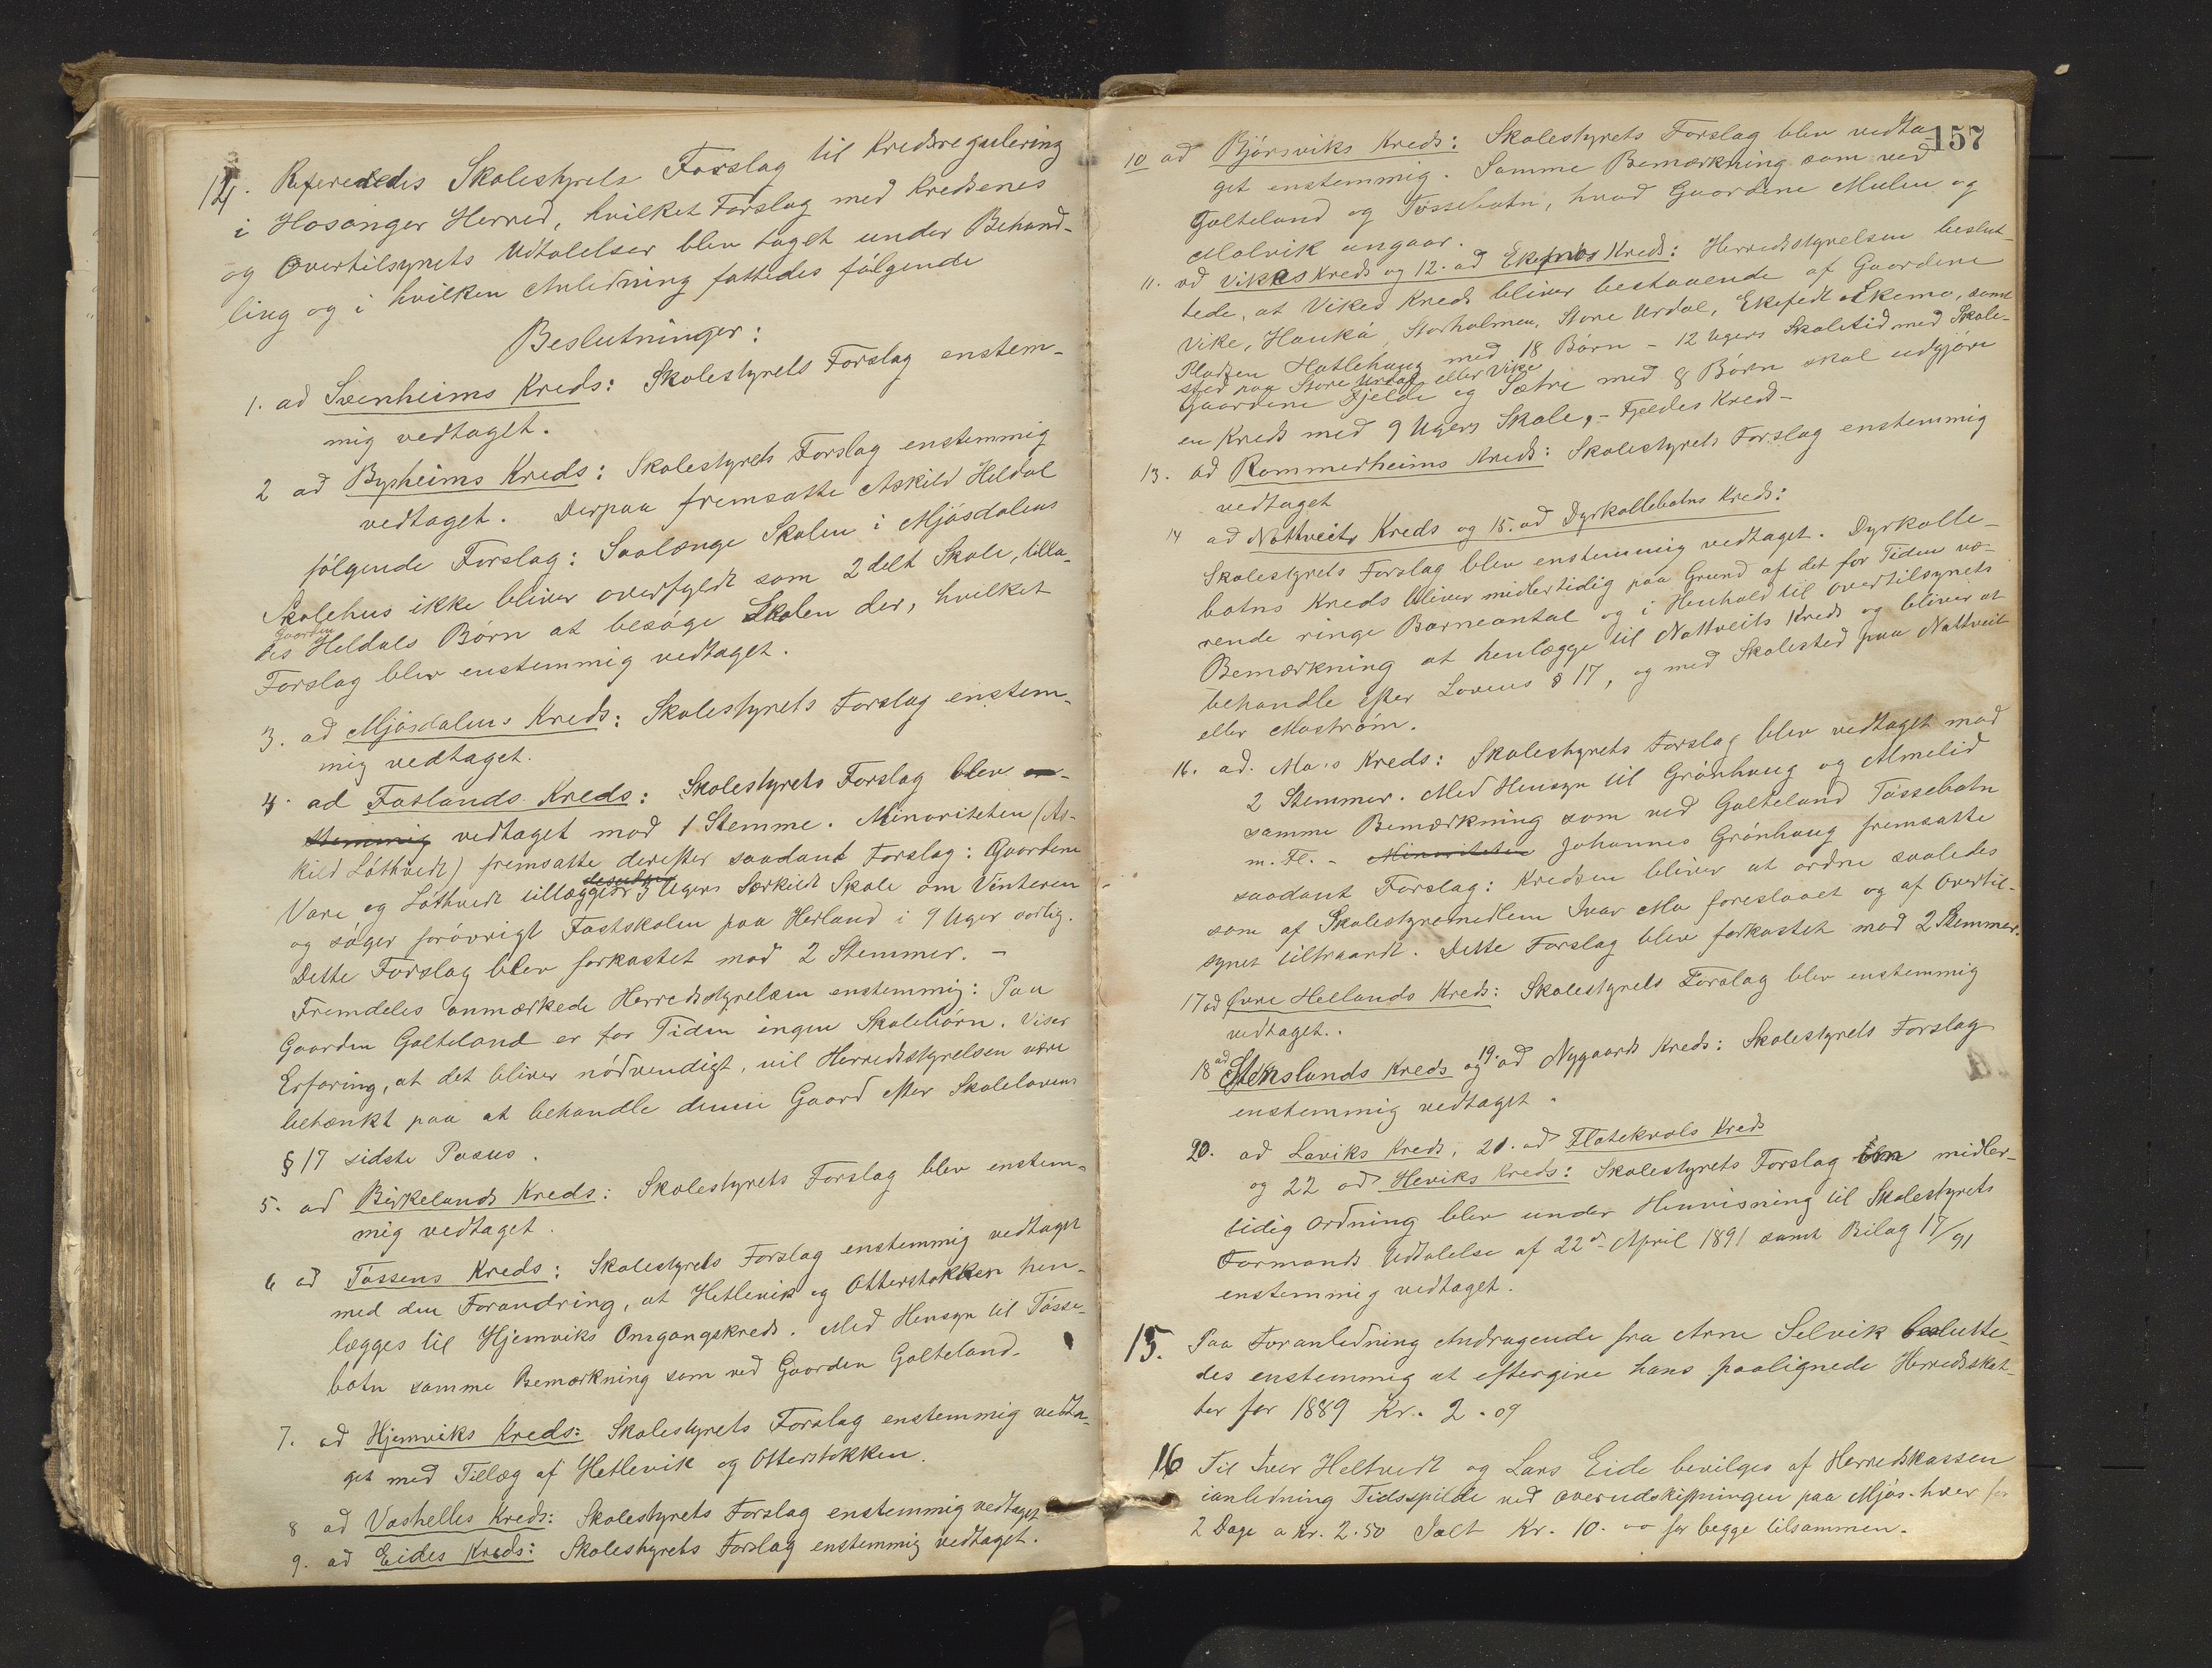 14. Refereredes Skolestyrets Forslag til Kredsregulering
i Hosanger Herred, hvilket Forslag med Kredsenes
og Overtilsynets Udtalelser blev taget under Behand-
ling og i hvilken Anledning fattedes følgende
Beslutninger:
1. ad Svenheims Kreds: Skolestyrets Forslag enstem-
mig vedtaget.
2 ad Bysheims Kreds: Skolestyrets Forslag enstemmig
vedtaget. Derpaa fremsatte Askild Heldal
følgende Forslag: Saalænge Skolen i Mjøsdalens
Skolehus ikke bliver overfyldt som 2delt Skole, tilla-
des Gaarden Heldals Børn at besøge Skolen der, hvilket
Forslag blev enstemmig vedtaget.
3. ad Mjøsdalens Kreds: Skolestyrets Forslag enstem-
mig vedtaget.
4. ad Fotlands Kreds: Skolestyrets Forslag blev en-
stemmig vedtaget mod 1 Stemme. Minoriteten (As-
kild Lóthvedt) fremsatte derefter saadant Forslag: Gaardene
Vare og Lóthvedt tillægges desuden 3 Ugers Særkildt Skole om Vinteren
og søger forøvrigt Fastskolen paa Herland i 9 Uger aarlig.
Dette Forslag blev forkastet mod 2 Stemmer. –
Fremdeles anmærkede Herredsstyrelsen enstemmig: Paa
Gaarden Galteland er for Tiden ingen Skolebørn. Viser
Erfaring, at det bliver nødvendigt, vil Herredsstyrelsen være
betænkt paa at behandle denne Gaard efter Skolelovens
§ 17 sidste Passus.
5. ad Birkelands Kreds: Skolestyrets Forslag blev enstem-
mig vedtaget.
6 ad Tøssens Kreds: Skolestyrets Forslag enstemmig vedtaget
med den Forandring, at Hetlevik og Otterstokken hen-
lægges til Hjemviks Omgangskreds. Med Hensyn til Tøsse-
botn samme Bemærkning som ved Gaarden Galteland.
7. ad Hjemviks Kreds: Skolestyrets Forslag enstemmig vedta-
get med Tillæg af Hetlevik og Otterstokken.
8 ad Vashelles Kreds: Skolestyrets Forslag enstemmig vedtaget
9. ad Eides Kreds: Skolestyrets Forslag enstemmig vedtaget.
157
10 ad Bjørsviks Kreds: Skolestyrets Forslag blev vedta-
get enstemmig. Samme Bemærkning som ved
Galteland og Tøssebotn, hvad Gaardene Mulen og
Molvik angaar.
11. ad Vikes Kreds og 12. ad Ekenes Kreds: Herredsstyrelsen beslut-
tede, at Vikes Kreds bliver bestaaende af Gaardene
Vike, Hauká, Storholmen, Store Urdal, Ekefedt Ekemo, samt
Pladsen Hatlehaug med 18 Børn – 12 Ugers Skoletid med Skole-
sted paa Store Urdal eller Vike
Gaardene Fjelde og Sætre med 8 Børn skal udgjøre
en Kreds med 9 Ugers Skole, – Fjeldes Kreds –
13. ad Rommerheims Kreds: Skolestyrets Forslag enstemmig
vedtaget
14 ad Nottveits Kreds og 15. ad Dyrkollebotns Kreds:
Skolestyrets Forslag blev enstemmig vedtaget. Dyrkolle-
botns Kreds bliver midlertidig paa Grund af det for Tiden væ-
rende ringe Barneantal og i Henhold til Overtilsynets
Bemærkning at henlægge til Nottveits Kreds og bliver at
behandle efter Lovens § 17, og med Skolested paa Nottveit
eller Mostrøm.
16. ad. Mo's Kreds: Skolestyrets Forslag blev vedtaget mod
2 Stemmer. Med Hensyn til Grønhaug og Almelid
samme Bemærkning som ved Galteland Tøssebotn
m. Fl. – Minoriteten Johannes Grønhaug fremsatte
saadant Forslag: Kredsen bliver at ordne saaledes
som af Skolestyremedlem Ivar Mo foreslaaet og af Overtil-
synet tiltraadt. Dette Forslag blev forkastet mod 2 Stemmer.
17 ad Øvre Hellands Kreds: Skolestyrets Forslag blev enstemmig
vedtaget.
18 ad Stenslands Kreds og 19. ad Nygaards Kreds: Skolestyrets Forslag
enstemmig vedtaget.
20. ad Laviks Kreds, 21. ad Flatekvals Kreds
og 22 ad Heviks Kreds: Skolestyrets Forslag om midler-
tidig Ordning blev under Henvisning til Skolestyrets
Formands Udtalelse af 22de April 1891 samt Bilag 17/91
enstemmig vedtaget.
15. Paa Foranledning Andragende fra Arne Selvik beslutte-
des enstemmig at eftergive hans paalignede Herredsskat-
ter for 1889 Kr. 2.09
16 Til Iver Heltvedt og Lars Eide bevilges af Herredskassen
ianledning Tidsspilde ved Overudskiftningen paa Mjøs-hver for
2 Dage a Kr. 2.50 Ialt Kr. 10.00 for begge tilsammen.